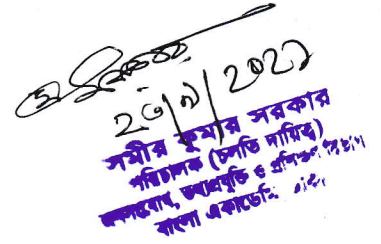 ২৩/৯/২০২১
সমীর কুমার সরকার
পরিচালক (চলতি দায়িত্ব)
জনসংযোগ, তথ্যপ্রযুক্তি ও প্রশিক্ষণ বিভাগ
বাংলা একাডেমি